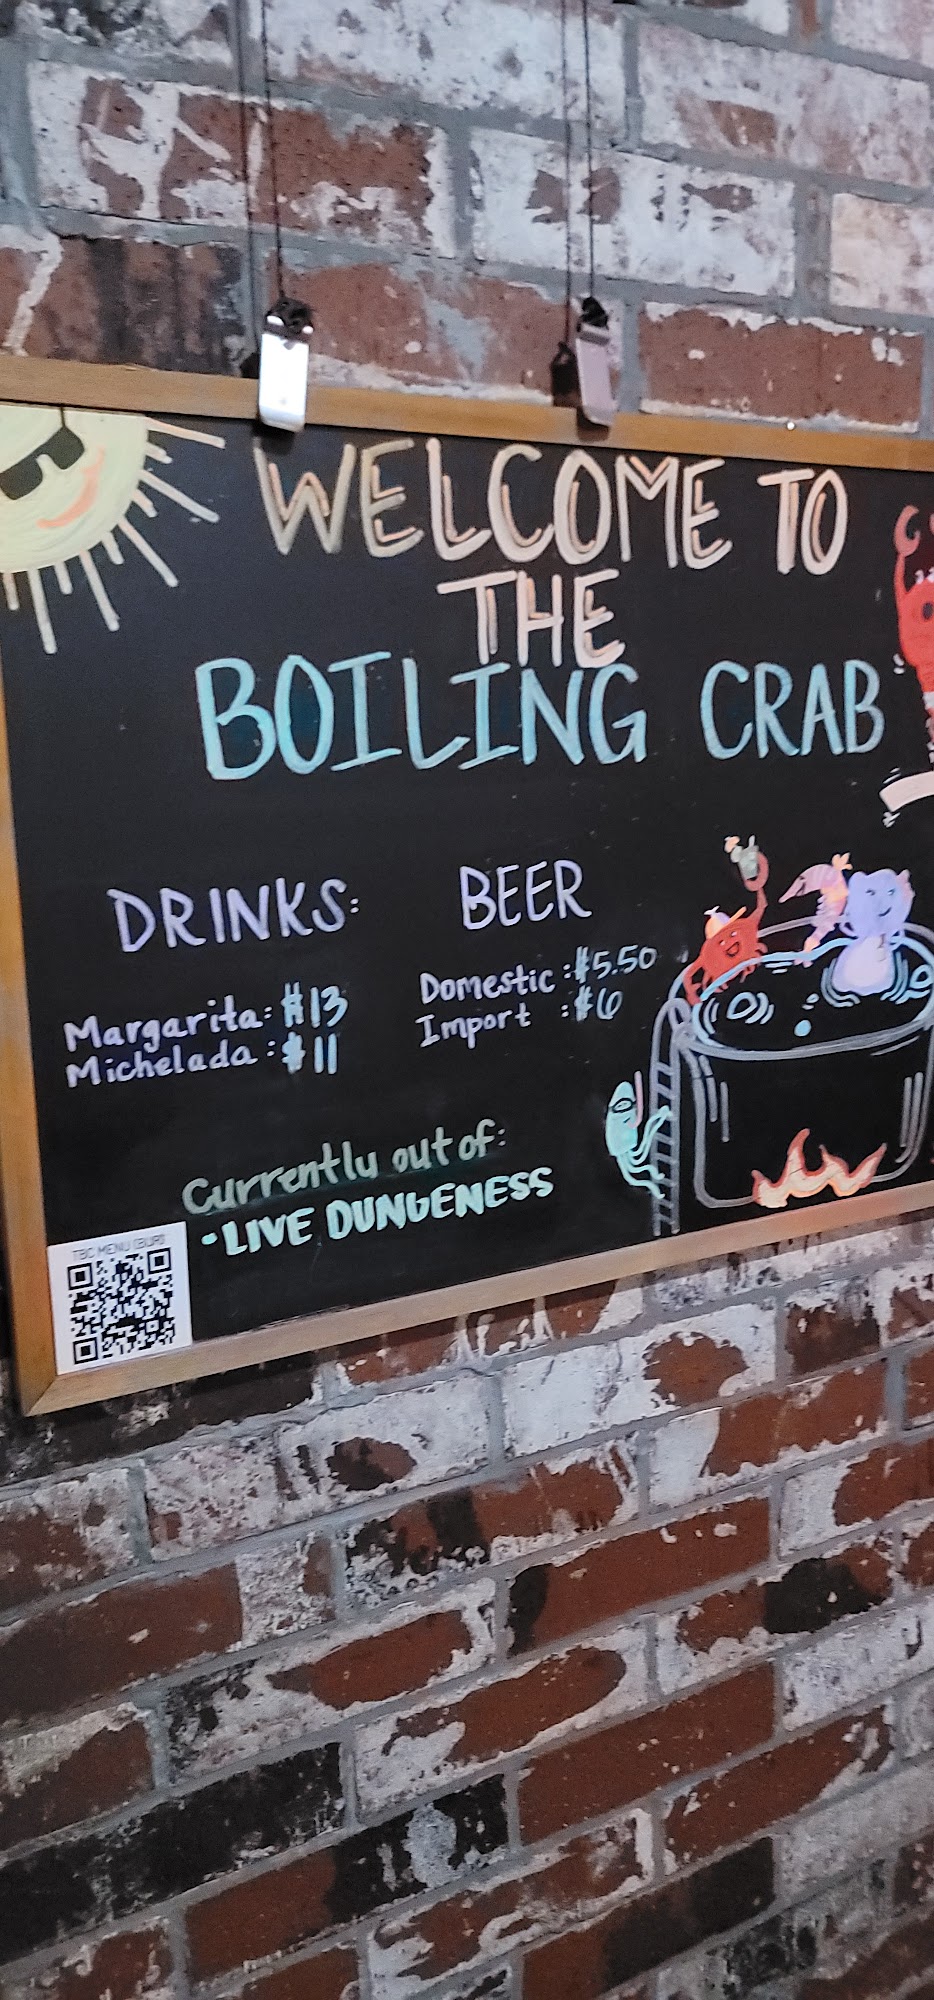 WELCOME TO
THE
BOILING CRAB
DRINKS:
Margarita: $13
Michelada: $11
BEER
Domestic: $5.50
Import : $6
Currently out of:
• LIVE DUNGENESS
TBC MENU (BUR)